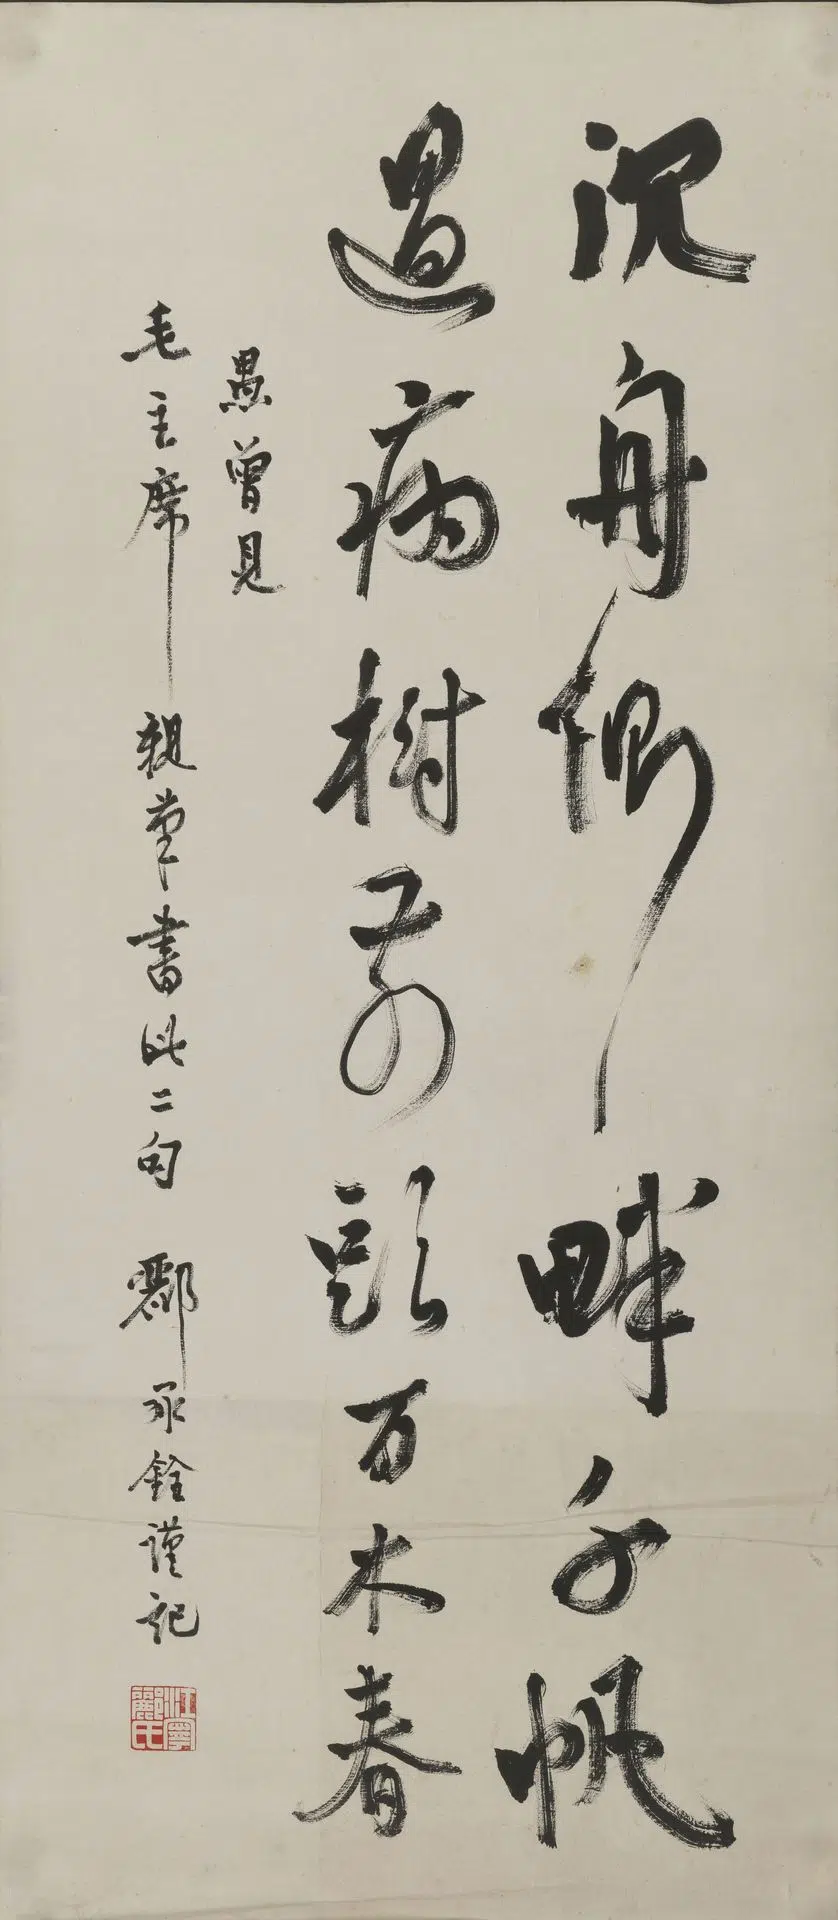 沉舟側畔千帆
過病樹前頭万木春
愚曾見
毛主席親筆書此二句 酈承銓謹記
江寧酈氏